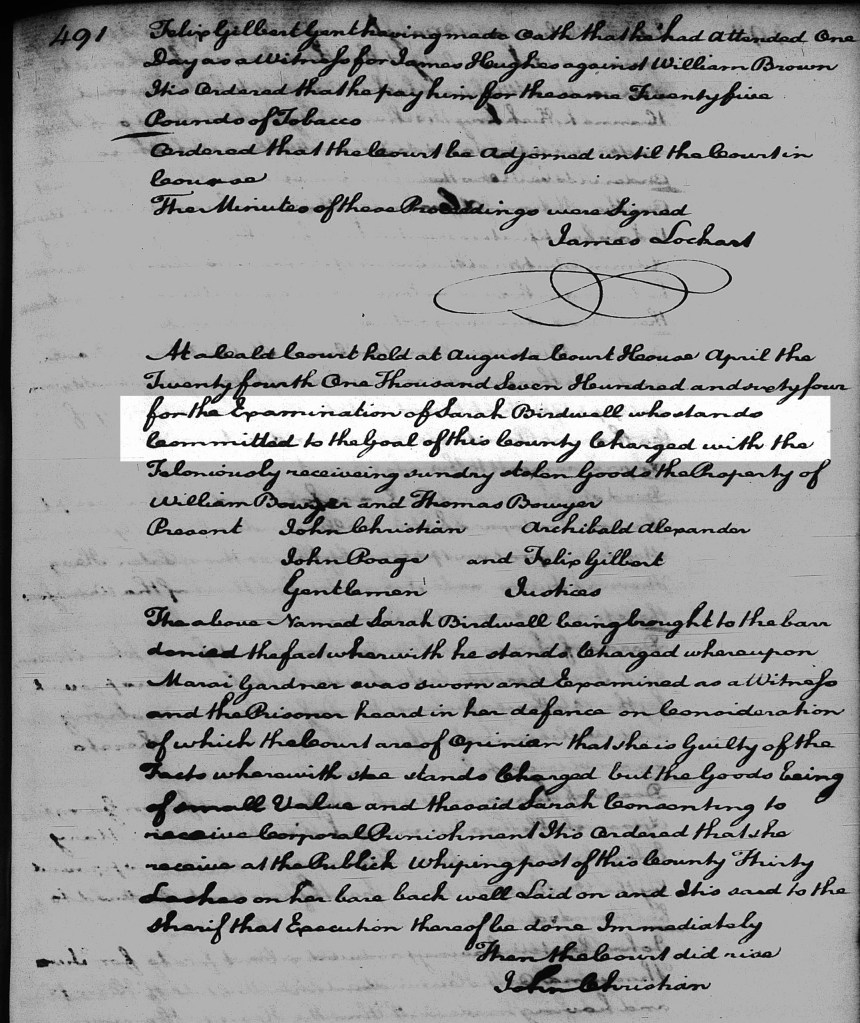 491
Felix Gilbert Gent having made Oath that he had Attended One
Day as a Witness for James Hughes against William Brown
It is Ordered that he pay him for the same Twenty five
Pounds of Tobacco
Ordered that the Court be Adjorned until the Court in
Course
The Minutes of these Proceedings were Signed
James Lockart
At a Calld Court held at Augusta Court House April the
Twenty fourth One Thousand Seven Hundred and sixty four
for the Examination of Sarah Birdwell who stands
Committed to the Goal of this County Charged with the
Feloniously receiveing sundry stolen Goods the Property of
William Bowyer and Thomas Bowyer
Present John Christian Archibald Alexander
John Poage and Felix Gilbert
Gentlemen Justices
The above Named Sarah Birdwell being brought to the barr
denied the fact wherwith he stands Charged whereupon
Marai Gardner was sworn and Examined as a Witness
and the Prisoner heard in her defence on Consideration
of which the Court are of Opinion that she is Guilty of the
Facts wherewith she stands Charged but the Goods being
of small Value and the said Sarah Consenting to
receive Corporal Punishment It is Ordered that she
receive at the Publick Whiping post of this County Thirty
Lashes on her bare back well Laid on and It is said to the
sherif that Execution thereof be done Immediately
Then the Court did rise
John Christian